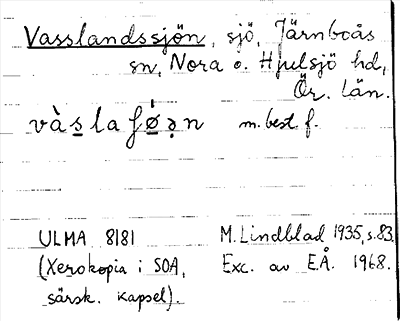 Vasslandssjön, sjö, Järnboås
sn, Nora o. Hjulsjö hd,
Ör. län.
m. best. f.
ULMA 8181 M. Lindblad 1935, s. 83.
(Xerokopia i SOA, Exc. av E.Å. 1968.
särsk. kapsel).